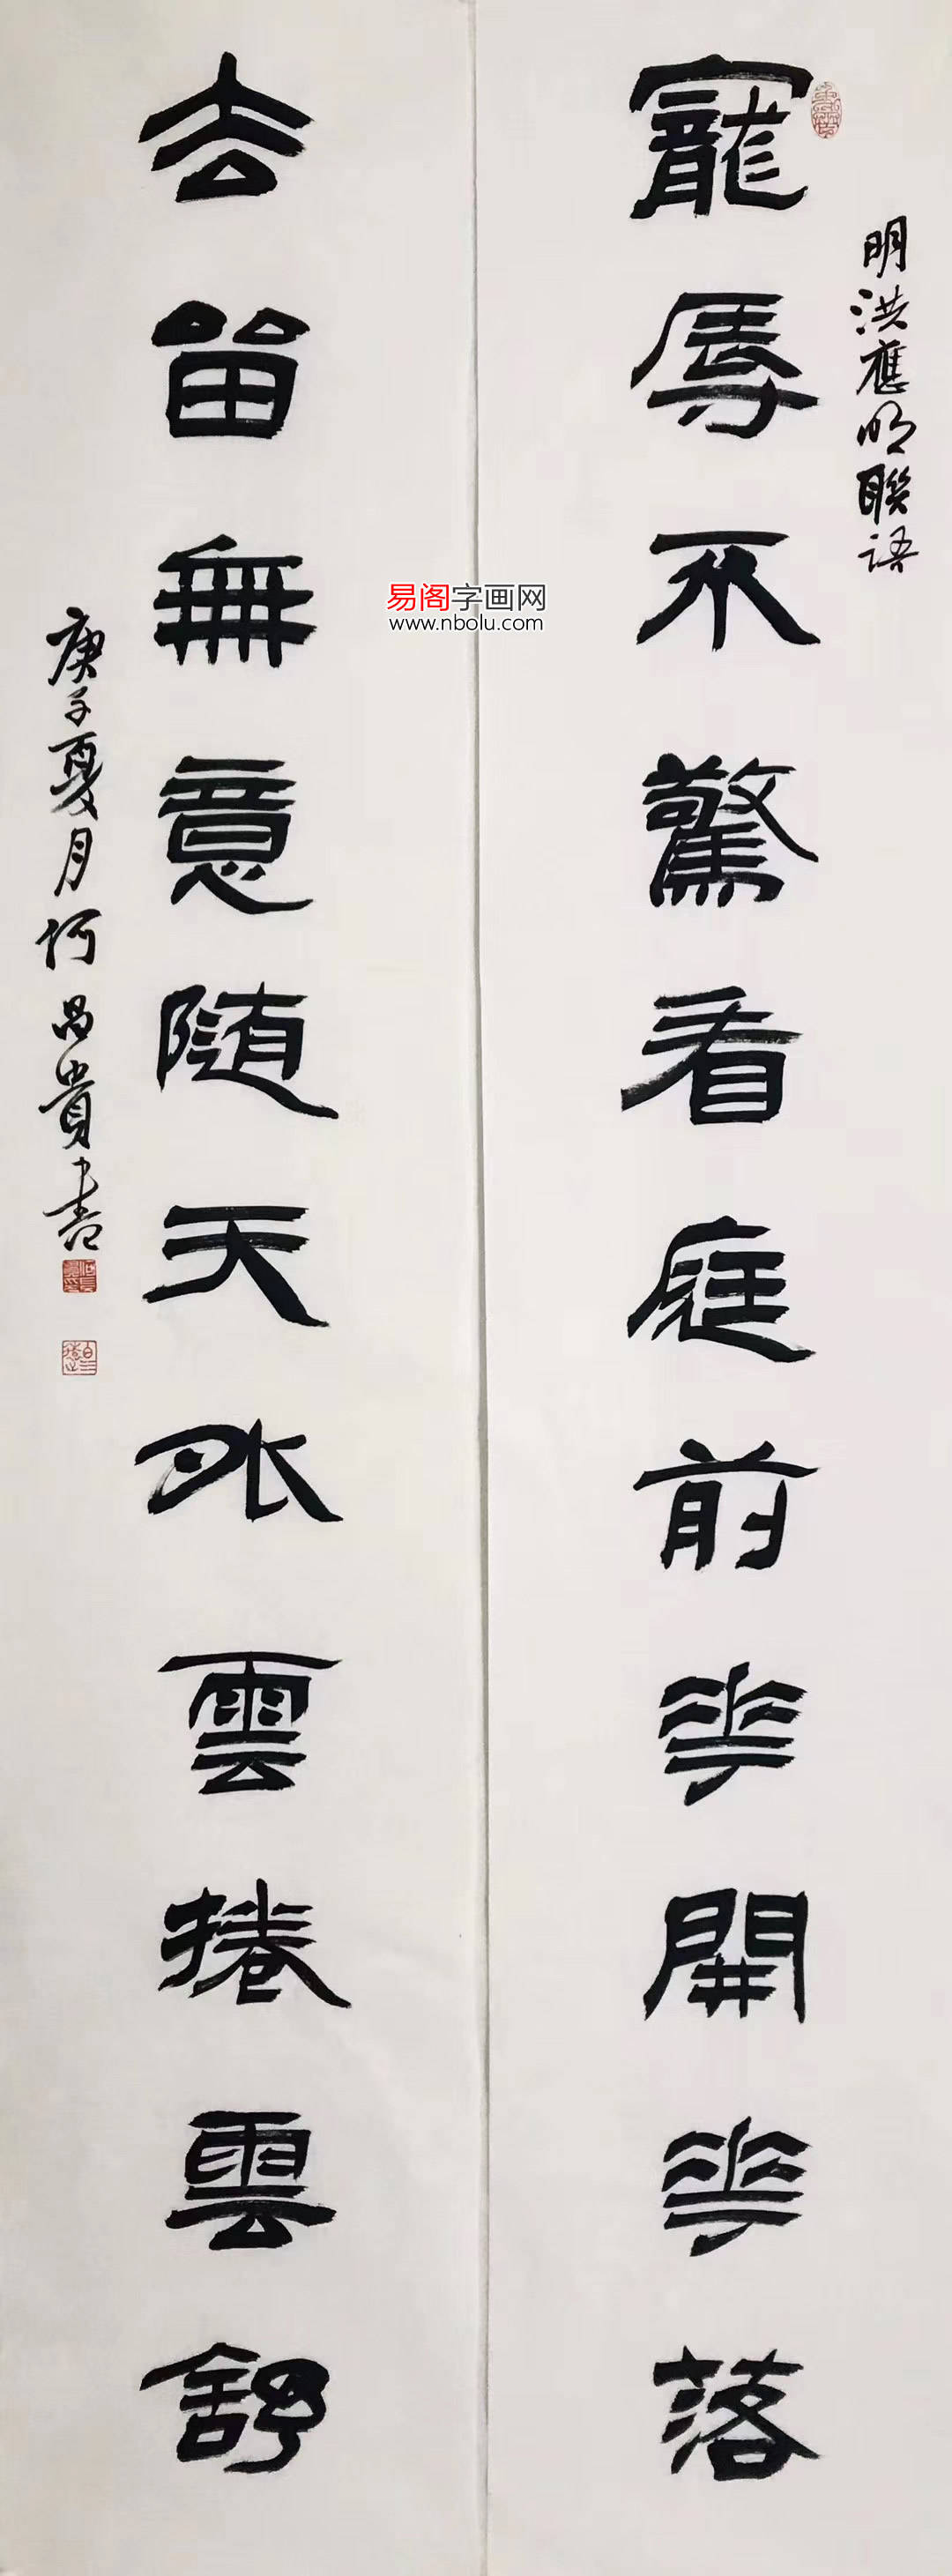 明洪應明聯語
寵辱不驚看庭前花開花落
去留無意隨天外雲捲雲舒
庚子夏月何昌貴書
易阁字画网
www.nbolu.com